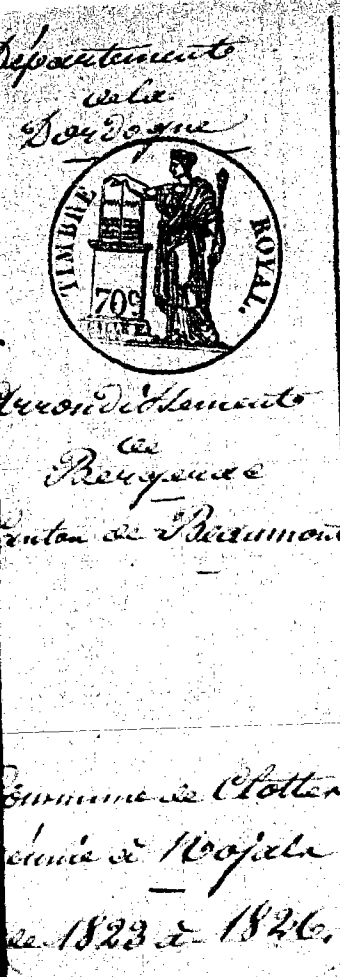 Département
de la
Dordogne
TIMBRE ROYAL.
70c
Arrondissement
de
Bergerac
Canton de Beaumont
Commune de Clottes
réunie à Nojals
de 1823 à 1826.